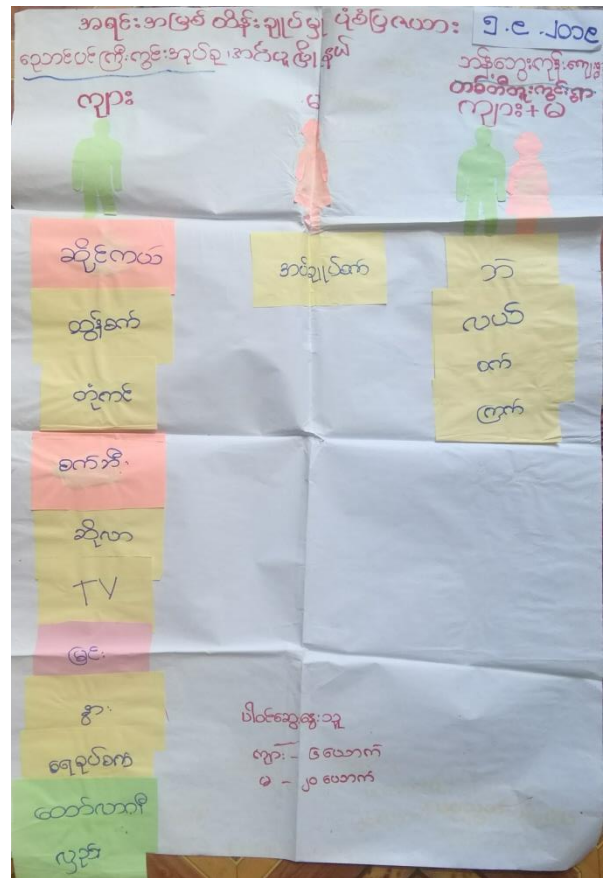 အရင်းအမြစ် ထိန်းချုပ်မှု ပုံစံပြဇယား ၅.၉.၂၀၁၉
ညောင်ပင်ကြီးကွင်းအုပ်စု၊ အင်္ဂပူမြို့နယ်
ကျား
မ
ကျား+မ
ဆိုင်ကယ်
ထွန်စက်
တုံကင်
စက်ဘီး
ဆိုလာ
TV
မြင်း
နွား
ရေစုပ်စက်
ထော်လာဂျီ
လှည်း
အပ်ချုပ်စက်
ဘဲ
လယ်
ဝက်
ကြက်
ပါဝင်ဆွေးနွေးသူ
ကျား - ၆ ယောက်
မ - ၂၀ ယောက်